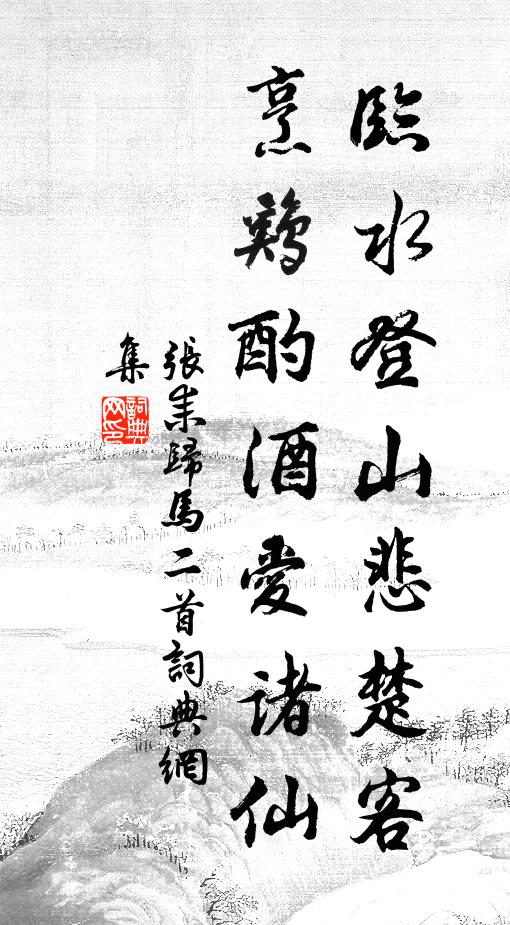 臨水登山悲楚客
烹鶏酌酒愛諸仙
張耒歸馬二首詞典網
集
詞典網印